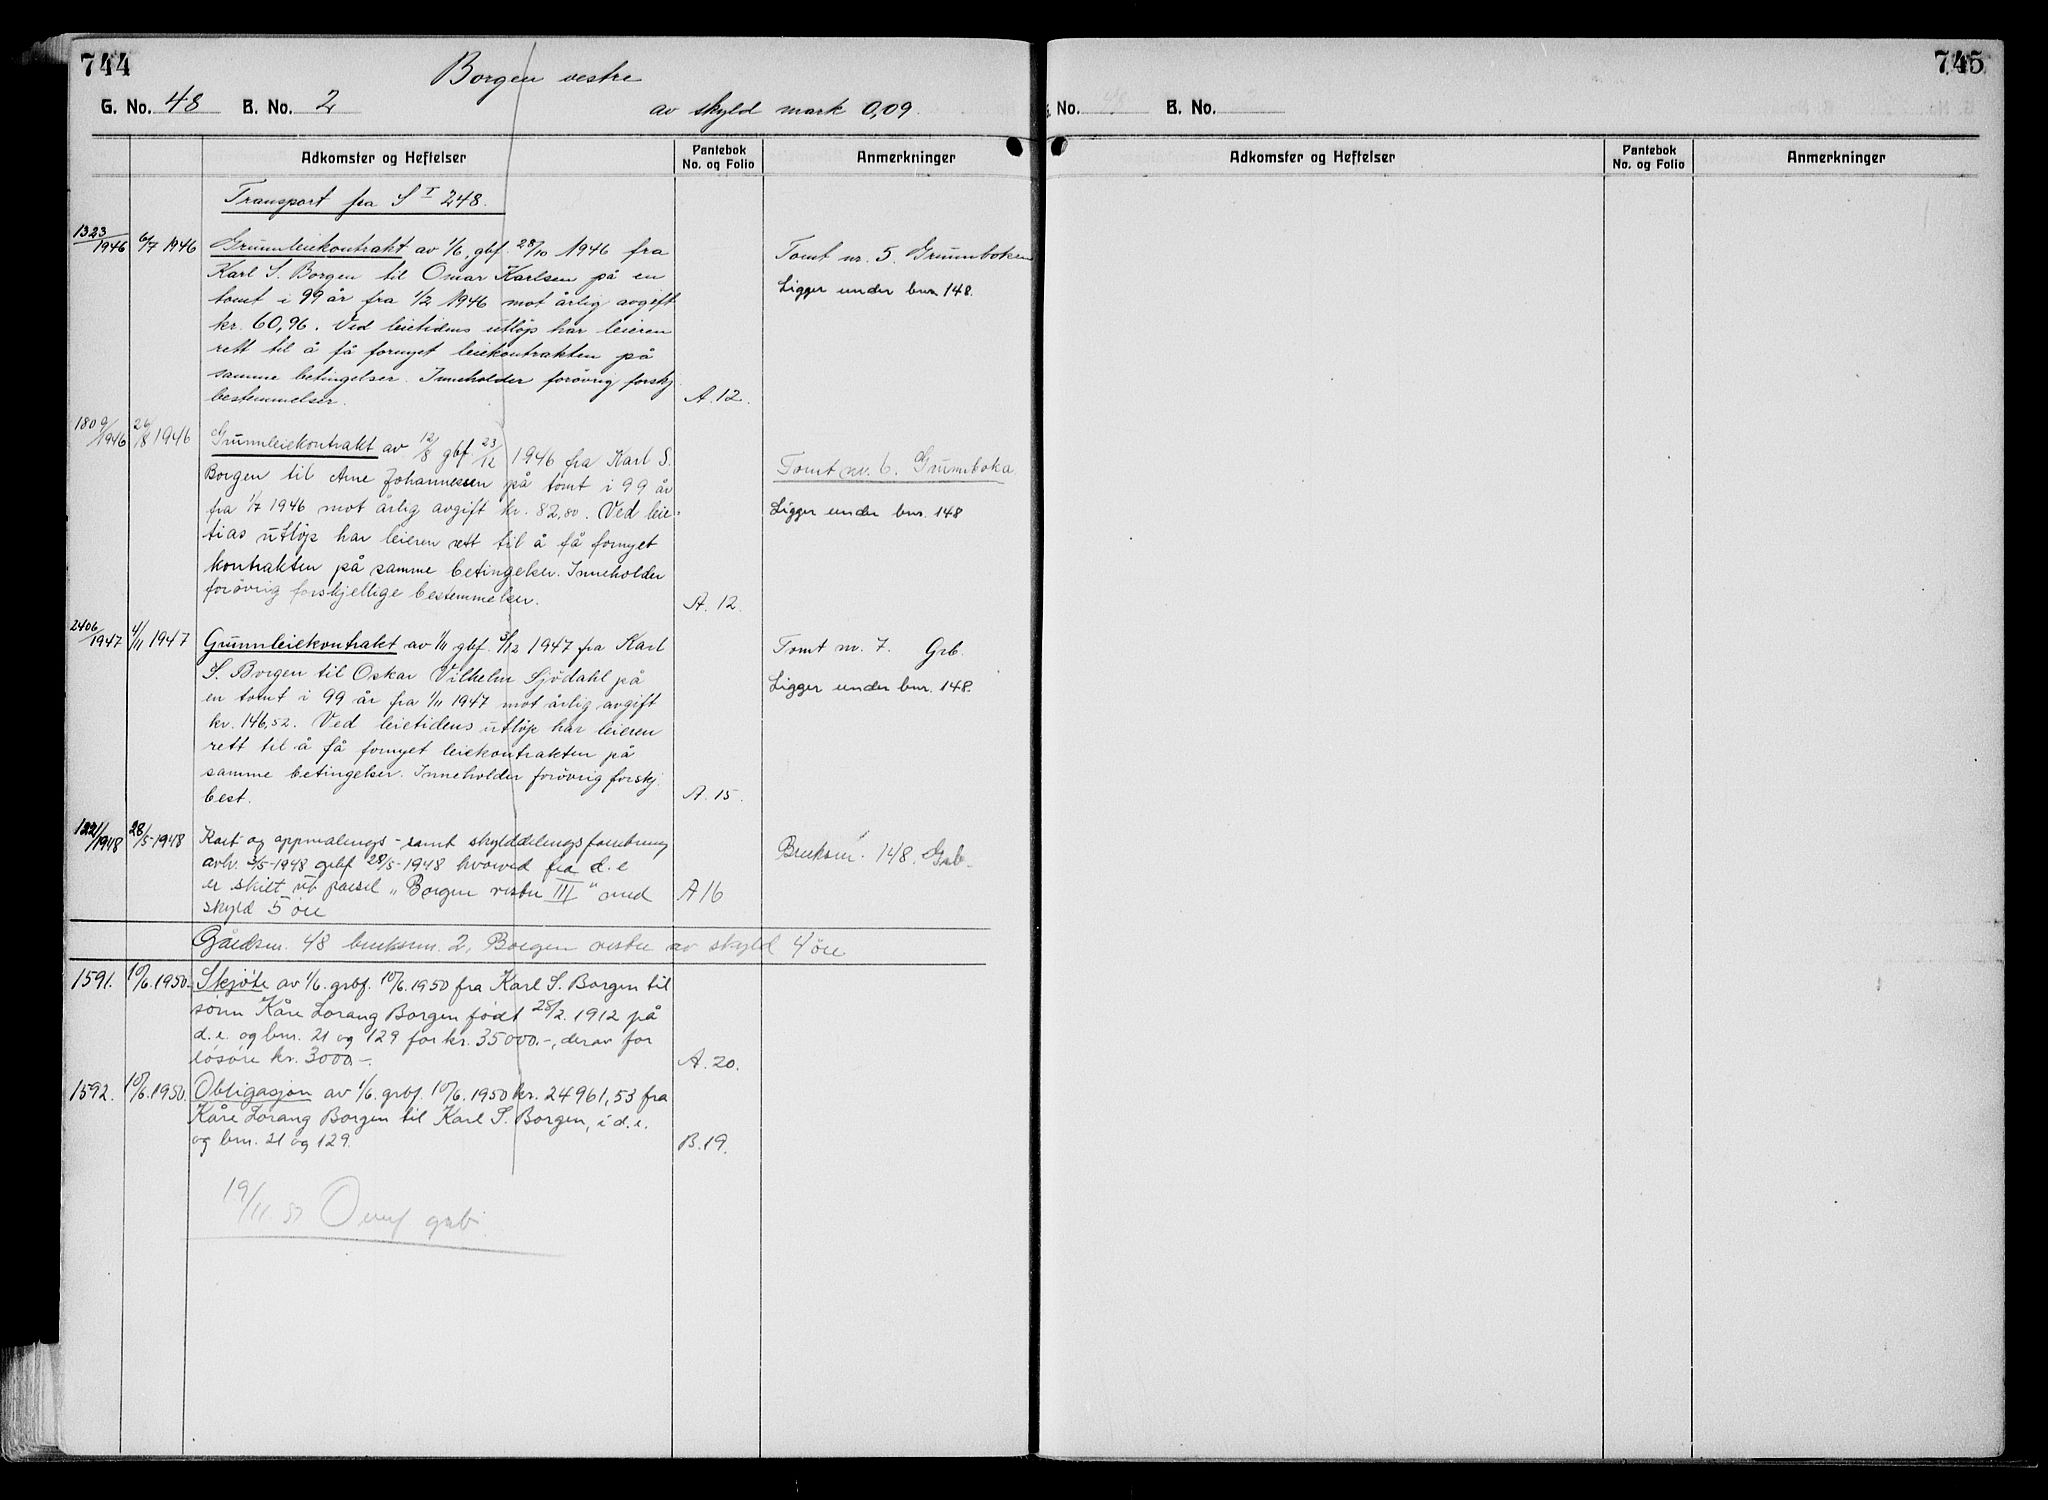 744
Borgen vestre
G. No. 48 B. No. 2
av skyld mark 0,09.
Adkomster og Heftelser
Pantebok
No. og Folio
Anmerkninger
Transport fra S I 248.
1323/1946 6/7 1946 Grunnleiekontrakt av 1/6, gbf 28/10 1946 fra
Karl S. Borgen til Omar Karlsen på en
tomt i 99 år fra 1/2 1946 mot årlig avgift
kr. 60,96. Ved leietidens utløp har leieren
rett til å få fornyet leiekontrakten på
samme betingelser. Inneholder forøvrig forskj.
bestemmelser. A.12.
Tomt nr. 5. Grunnboken
Ligger under bnr 148.
1809/1946 26/8 1946 Grunnleiekontrakt av 12/8 gbf 23/12 1946 fra Karl S.
Borgen til Arne Johannessen på tomt i 99 år
fra 1/7 1946 mot årlig avgift kr. 82,80. Ved leie-
tias utløp har leieren rett til å få fornyet
kontrakten på samme betingelser. Inneholder
forøvrig forskjellige bestemmelser. A.12.
Tomt nr. 6. Grunnboka
Ligger under bnr. 148
2406/1947 4/11 1947 Grunnleiekontrakt av 1/11 gbf. 3/12 1947 fra Karl
S. Borgen til Oskar Vilhelm Sjödahl på
en tomt i 99 år fra 1/11 1947 mot årlig avgift
kr. 146,52. Ved leietidens utløp har leieren
rett til å få fornyet leiekontrakten på
samme betingelser. Inneholder forøvrig forskj.
best. A.15.
Tomt nr. 7. Grb.
Ligger under bnr. 148.
1221/1948 28/5-1948 Kart og oppmålings- samt skylddelingsforretning
avh. 3/5-1948 grbf 28/5-1948 hvorved fra d.e
er skilt ut parsel "Borgen vestre III" med
skyld 5 øre A16
Bruksnr. 148. Grb.
Gårdsnr. 48 bruksnr. 2, Borgen vestre av skyld 4 øre
1591. 10/6.1950. Skjøte av 1/6. grbf. 10/6.1950 fra Karl S. Borgen til
sønn Kåre Lorang Borgen født 28/2.1912 på
d.e. og bnr. 21 og 129 for kr. 35000.-, derav for
løsøre kr. 3000.-. A.20.
1592. 10/6.1950. Obligasjon av 1/6. grbf. 10/6.1950 kr. 24961,53 fra
Kåre Lorang Borgen til Karl S. Borgen, i d.e.
og bnr. 21 og 129. B.19.
19/11 57 Overf grb.
745
G. No. 48 B. No. 2
Adkomster og Heftelser
Pantebok
No. og Folio
Anmerkninger